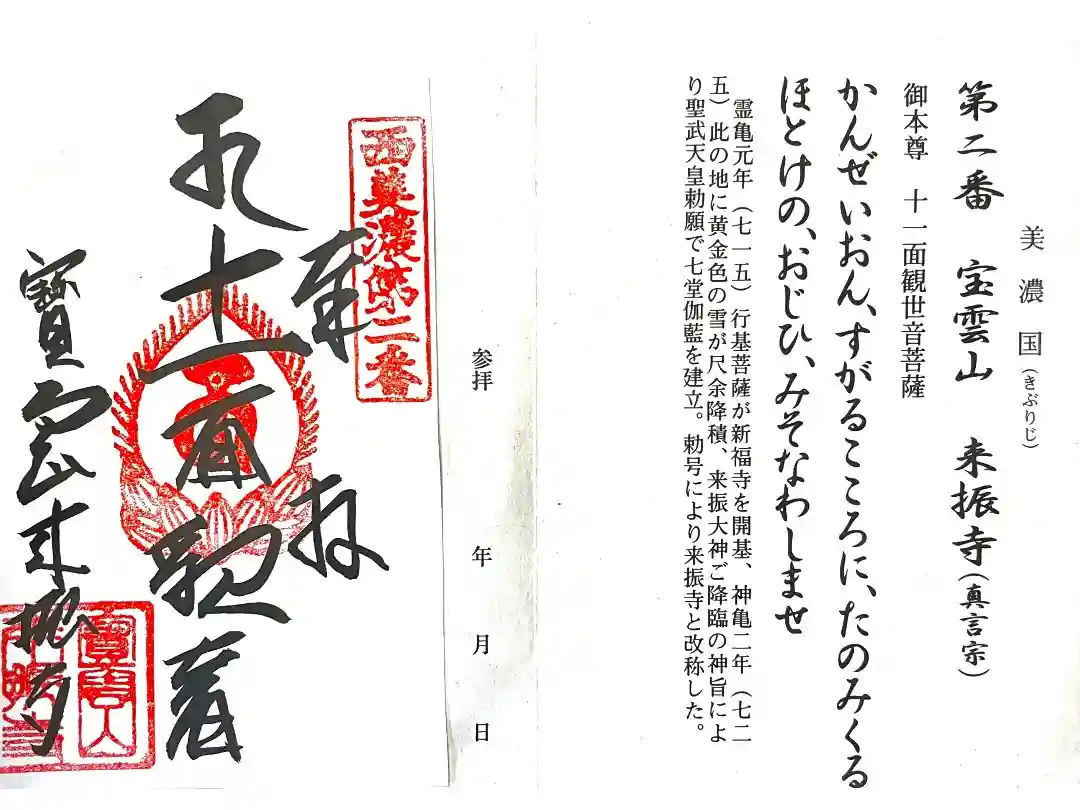 美濃国
第二番 宝雲山 来振寺(真言宗)
(きぶりじ)
御本尊 十一面観世音菩薩
かんぜいおん、すがるこころに、たのみくる
ほとけの、おじひ、みそなわしませ
霊亀元年(七一五)行基菩薩が新福寺を開基、神亀二年(七二
五)此の地に黄金色の雪が尺余降積、来振大神ご降臨の神旨によ
り聖武天皇勅願で七堂伽藍を建立。勅号により来振寺と改称した。
参拝 年 月 日
西美濃第二番
奉拝
十一面観音
寶雲山来振寺